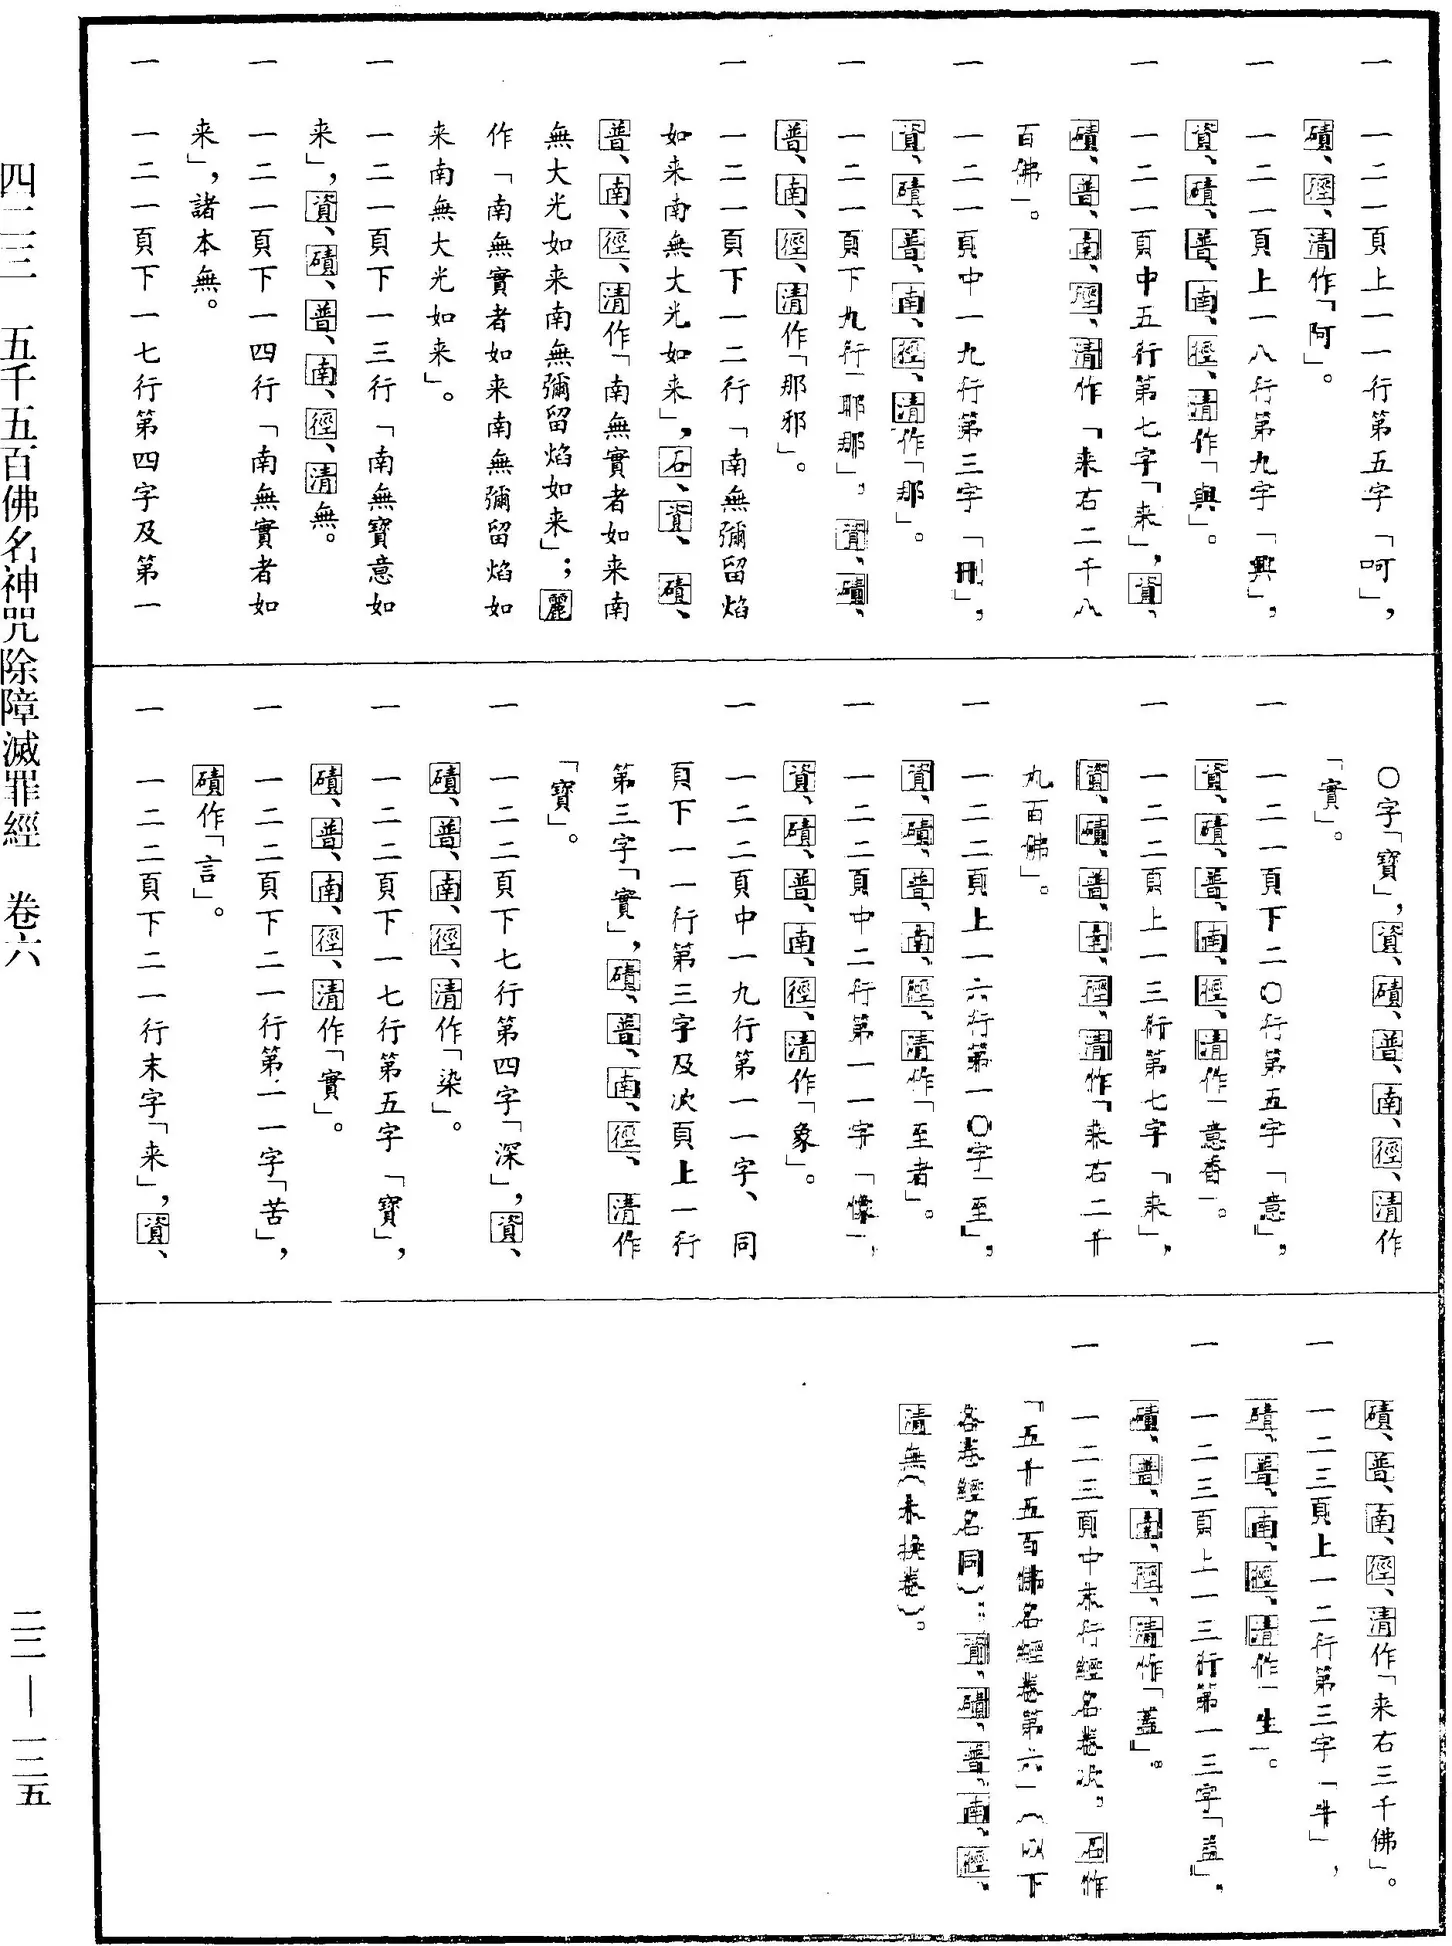 一　一二一頁上一一行第五字「呵」，
磧、徑、清作「阿」。
一　一二一頁上一八行第九字「興」，
資、磧、普、南、徑、清作「與」。
一　一二一頁中五行第七字「来」，資、
磧、普、南、徑、清作「来右二千八
百佛」。
一　一二一頁中一九行第三字「冊」，
資、磧、普、南、徑、清作「那」。
一　一二一頁下九行「耶那」，資、磧、
普、南、徑、清作「那邪」。
一　一二一頁下一二行「南無彌留焰
如来南無大光如来」，石、資、磧、
普、南、徑、清作「南無實者如来南
無大光如来南無彌留焰如来」；麗
作「南無實者如来南無彌留焰如
来南無大光如来」。
一　一二一頁下一三行「南無寶意如
来」，資、磧、普、南、徑、清無。
一　一二一頁下一四行「南無實者如
来」，諸本無。
一　一二一頁下一七行第四字及第一
〇字「寶」，資、磧、普、南、徑、清作
「實」。
一　一二一頁下二〇行第五字「意」，
資、磧、普、南、徑、清作「意香」。
一　一二二頁上一三行第七字「来」，
資、磧、普、南、徑、清作「来右二千
九百佛」。
一　一二二頁上一六行第一〇字「至」，
資、磧、普、南、徑、清作「至者」。
一　一二二頁中二行第一一字「像」，
資、磧、普、南、徑、清作「象」。
一　一二二頁中一九行第一一字、同
頁下一一行第三字及次頁上一行
第三字「實」，磧、普、南、徑、清作
「寶」。
一　一二二頁下七行第四字「深」，資、
磧、普、南、徑、清作「染」。
一　一二二頁下一七行第五字「寶」，
磧、普、南、徑、清作「實」。
一　一二二頁下二一行第一一字「苦」，
磧作「言」。
一　一二二頁下二一行末字「来」，資、
磧、普、南、徑、清作「来右三千佛」。
一　一二三頁上一二行第三字「牛」，
磧、普、南、徑、清作「生」。
一　一二三頁上一三行第一三字「益」，
磧、普、南、徑、清作「蓋」。
一　一二三頁中末行經名卷次，石作
「五千五百佛名經卷第六」（以下
各卷經名同）；資、磧、普、南、徑、
清無（未換卷）。
四二三　五千五百佛名神咒除障滅罪經　卷六
二二—一二五